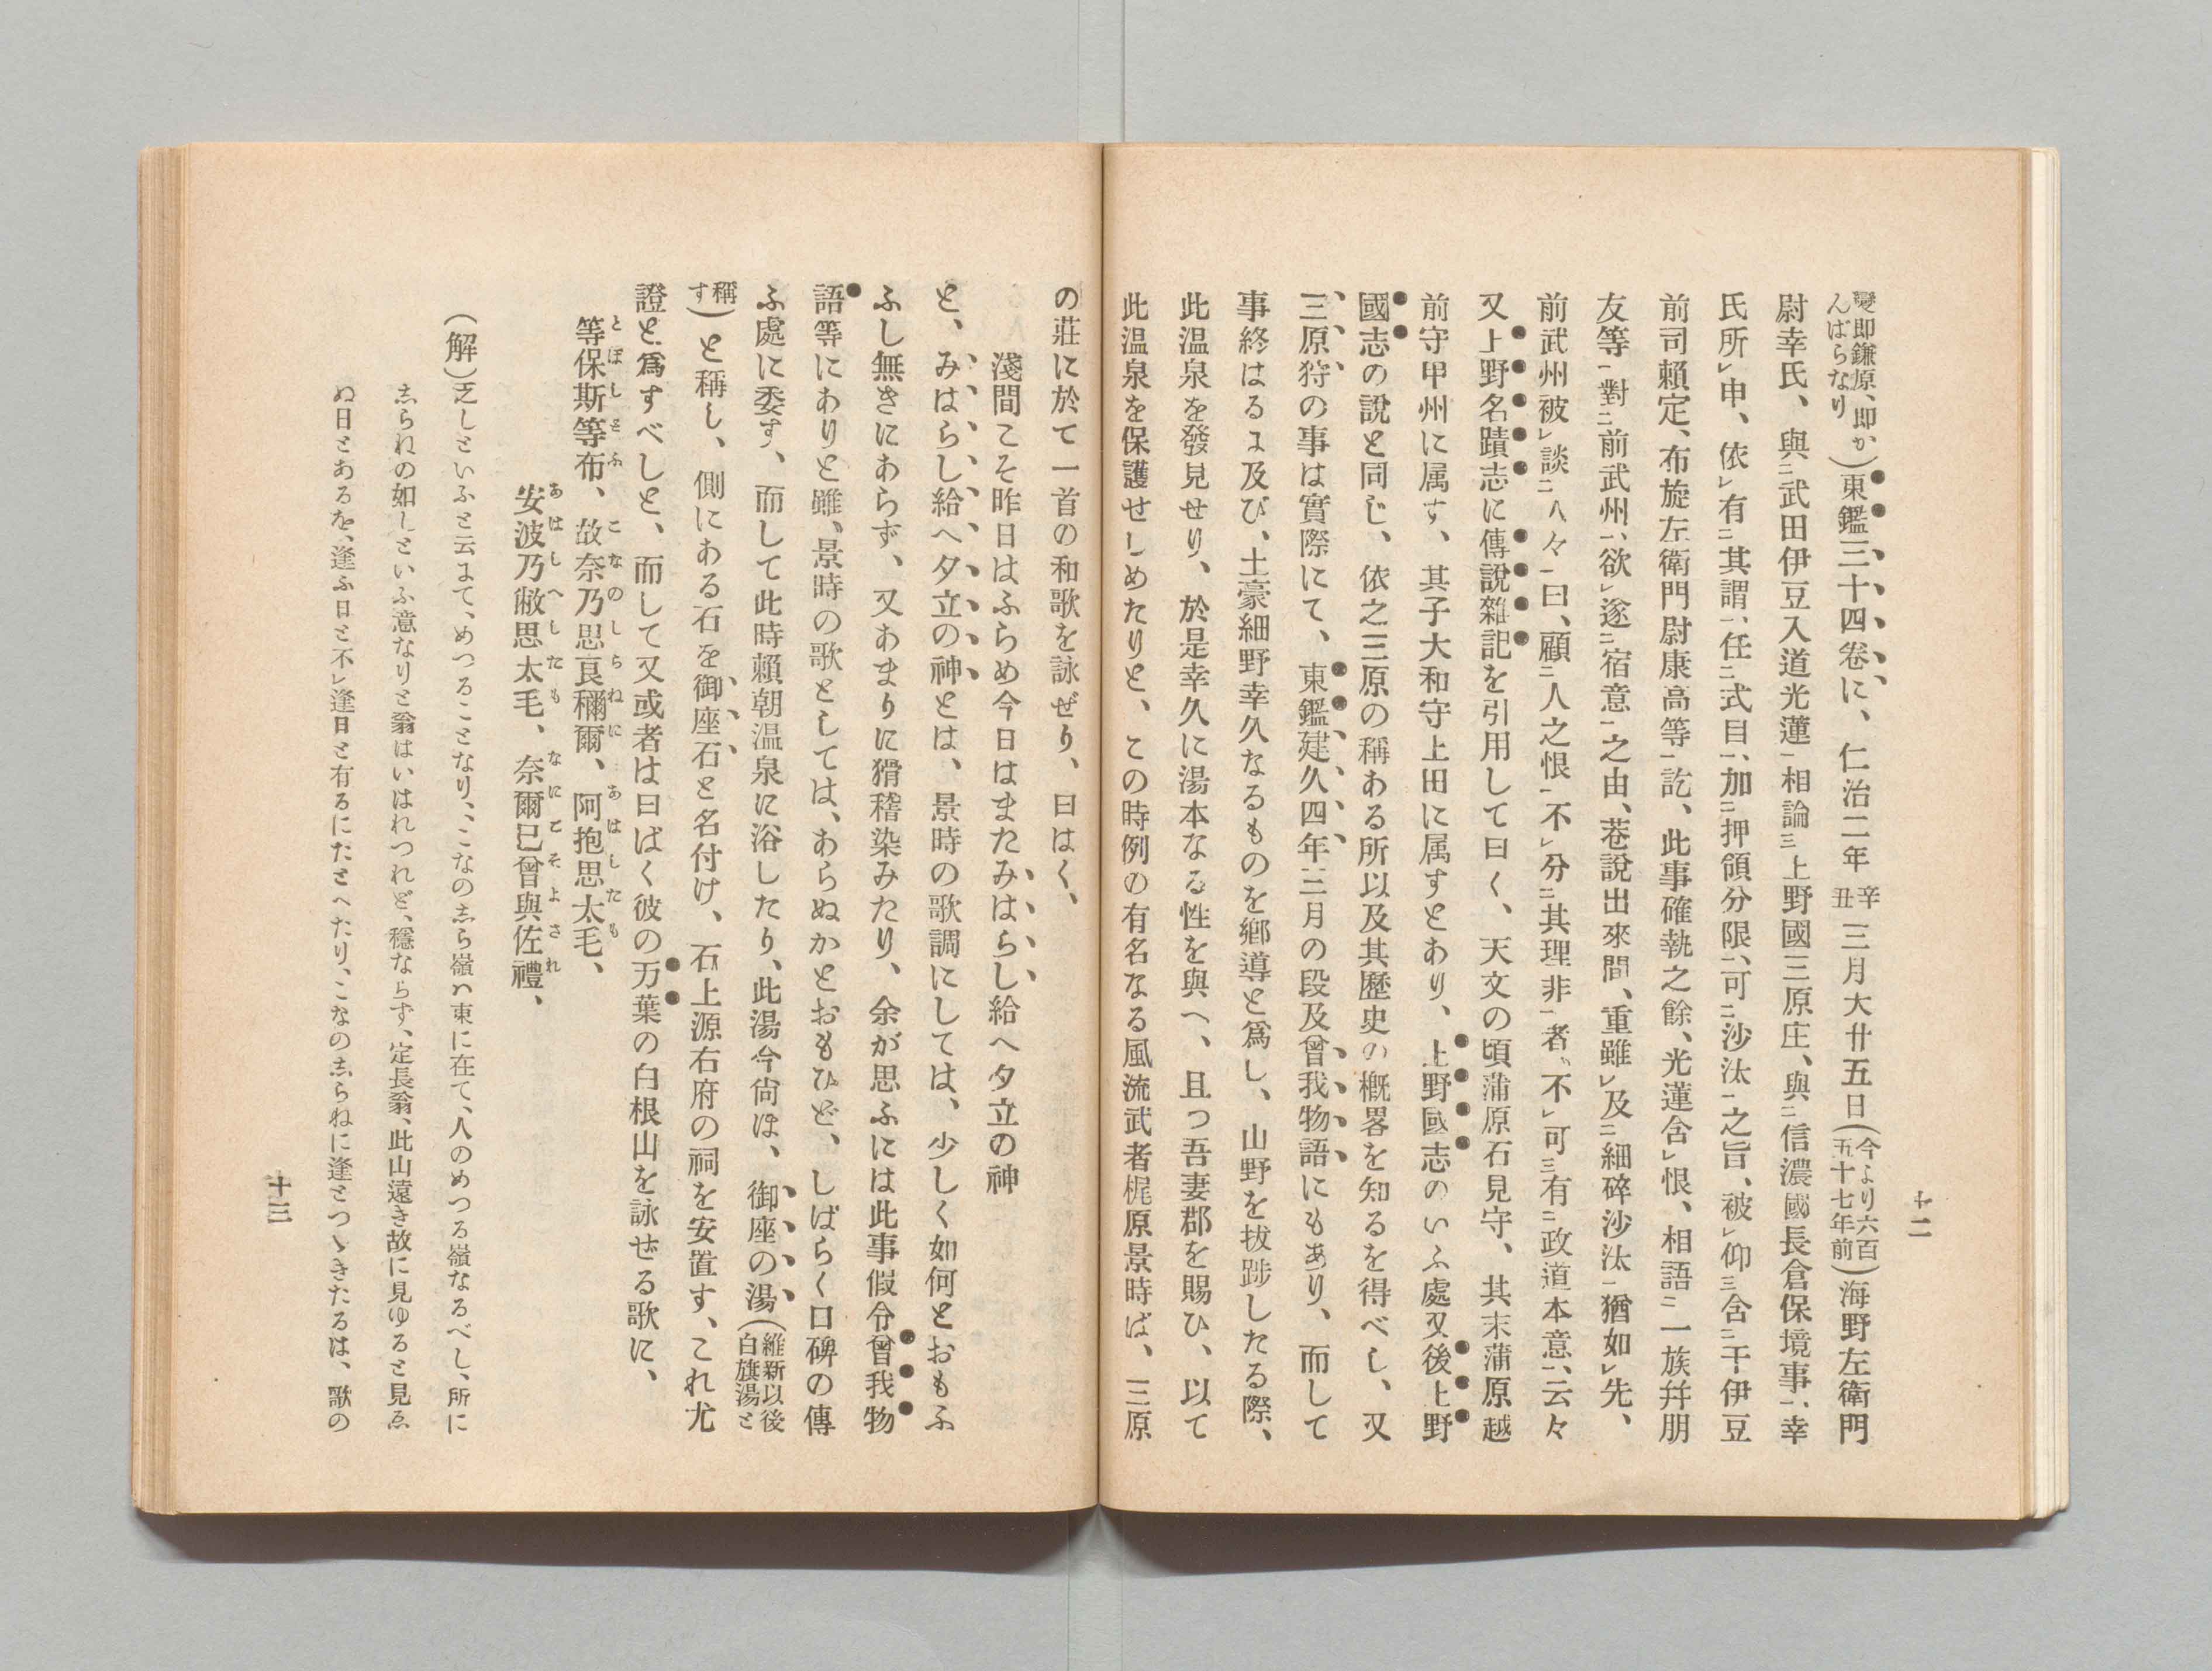 十二
變即鎌原、即か
んばらなり)東鑑三十四卷に、仁治二年辛丑三月大廿五日(今より六百五十七年前)海野左衛門
尉幸氏、與二武田伊豆入道光蓮一相論三上野國三原庄、與二信濃國長倉保境事一、幸
氏所レ申、依レ有二其謂一、任二式目一、加二押領分限一、可二沙汰一之旨、被レ仰三含二于伊豆
前司賴定、布旋左衛門尉康高等一訖、此事確執之餘、光蓮含レ恨、相語二一族幷朋
友等一對二前武州一、欲レ遂二宿意一之由、巷說出來間、重雖レ及二細碎沙汰一猶如レ先、
前武州被レ談二人々一曰、顧二人之恨一不レ分二其理非一者、不レ可三有二政道本意一、云々
又上野名蹟志に傳說雜記を引用して曰く、天文の頃蒲原石見守、其末蒲原越
前守甲州に属す、其子大和守上田に属すとあり、上野國志のいふ處又後上野
國志の說と同じ、依之三原の稱ある所以及其歷史の槪畧を知るを得べし、又
三原狩の事は實際にて、東鑑建久四年三月の段及曾我物語にもあり、而して
事終はるに及び、土豪細野幸久なるものを鄕導と爲し、山野を拔跋したる際、
此温泉を發見せり、於是幸久に湯本なる性を與へ、且つ吾妻郡を賜ひ、以て
此温泉を保護せしめたりと、この時例の有名なる風流武者梶原景時ば、三原
の莊に於て一首の和歌を詠ぜり、曰はく、
淺間こそ昨日はふらめ今日はまたみはらし給へ夕立の神
と、みはらし給へ夕立の神とは、景時の歌調にしては、少しく如何とおもふ
ふし無きにあらず、又あまりに猾稽染みたり、余が思ふには此事假令曾我物
語等にありと雖、景時の歌としては、あらぬかとおもひど、しばらく口碑の傳
ふ處に委す、而して此時賴朝温泉に浴したり、此湯今尙ほ、御座の湯(維新以後白旗湯と
稱す)と稱し、側にある石を御座石と名付け、石上源右府の祠を安置す、これ尤
證と爲すべしと、而して又或者は曰ばく彼の万葉の白根山を詠ぜる歌に、
等保斯等布、故奈乃思良禰爾、阿抱思太毛、
とほしとふ　こなのしらねに　あはしたも
安波乃敝思太毛、奈爾己曾與佐禮、
あはしへしたも　なにこそよされ
(解)乏しといふと云まて、めつることなり、こなの志ら嶺ハ東に在て、人のめつる嶺なるべし、所に
志らねの如しといふ意なりと翁はいはれつれど、穩ならず、定長翁、此山遠き故に見ゆると見ゑ
ぬ日とあるを、逢ふ日と不レ逢日と有るにたとへたり、こなの志らねに逢とつゝきたるは、歌の
十三